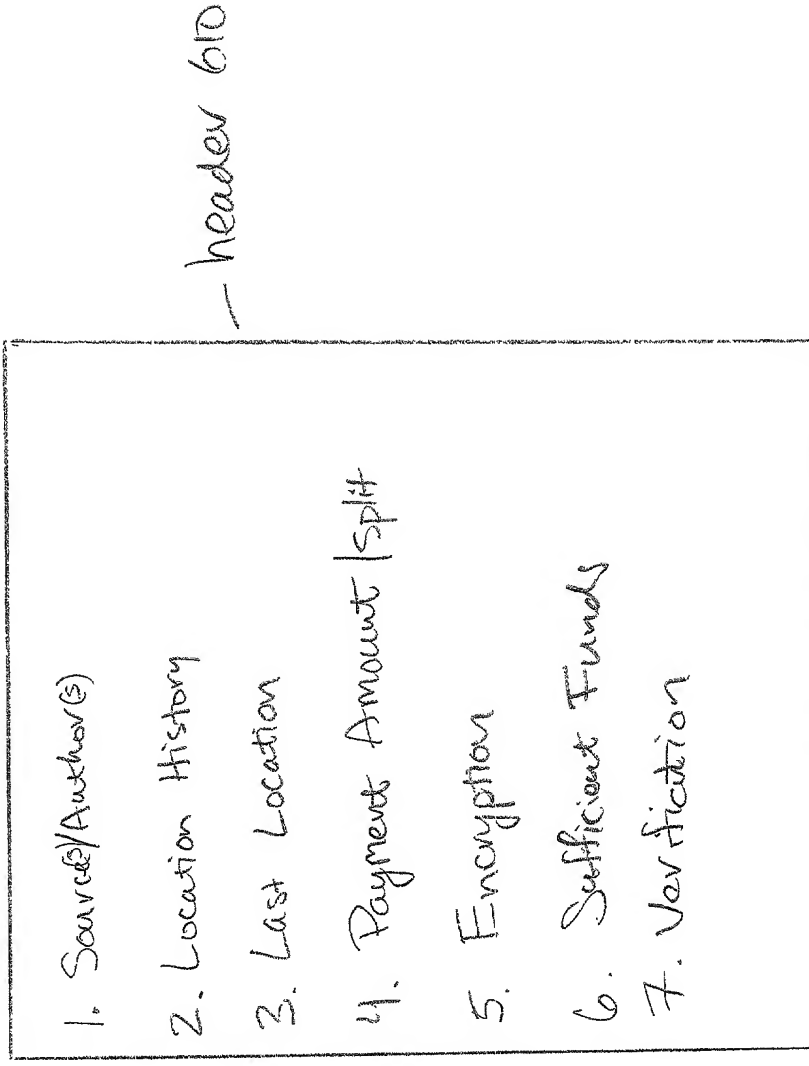 1. Source(s)/Author(s)
2. Location History
3. Last Location
4. Payment Amount/Split
5. Encryption
6. Sufficient Funds
7. Verification
— header 610